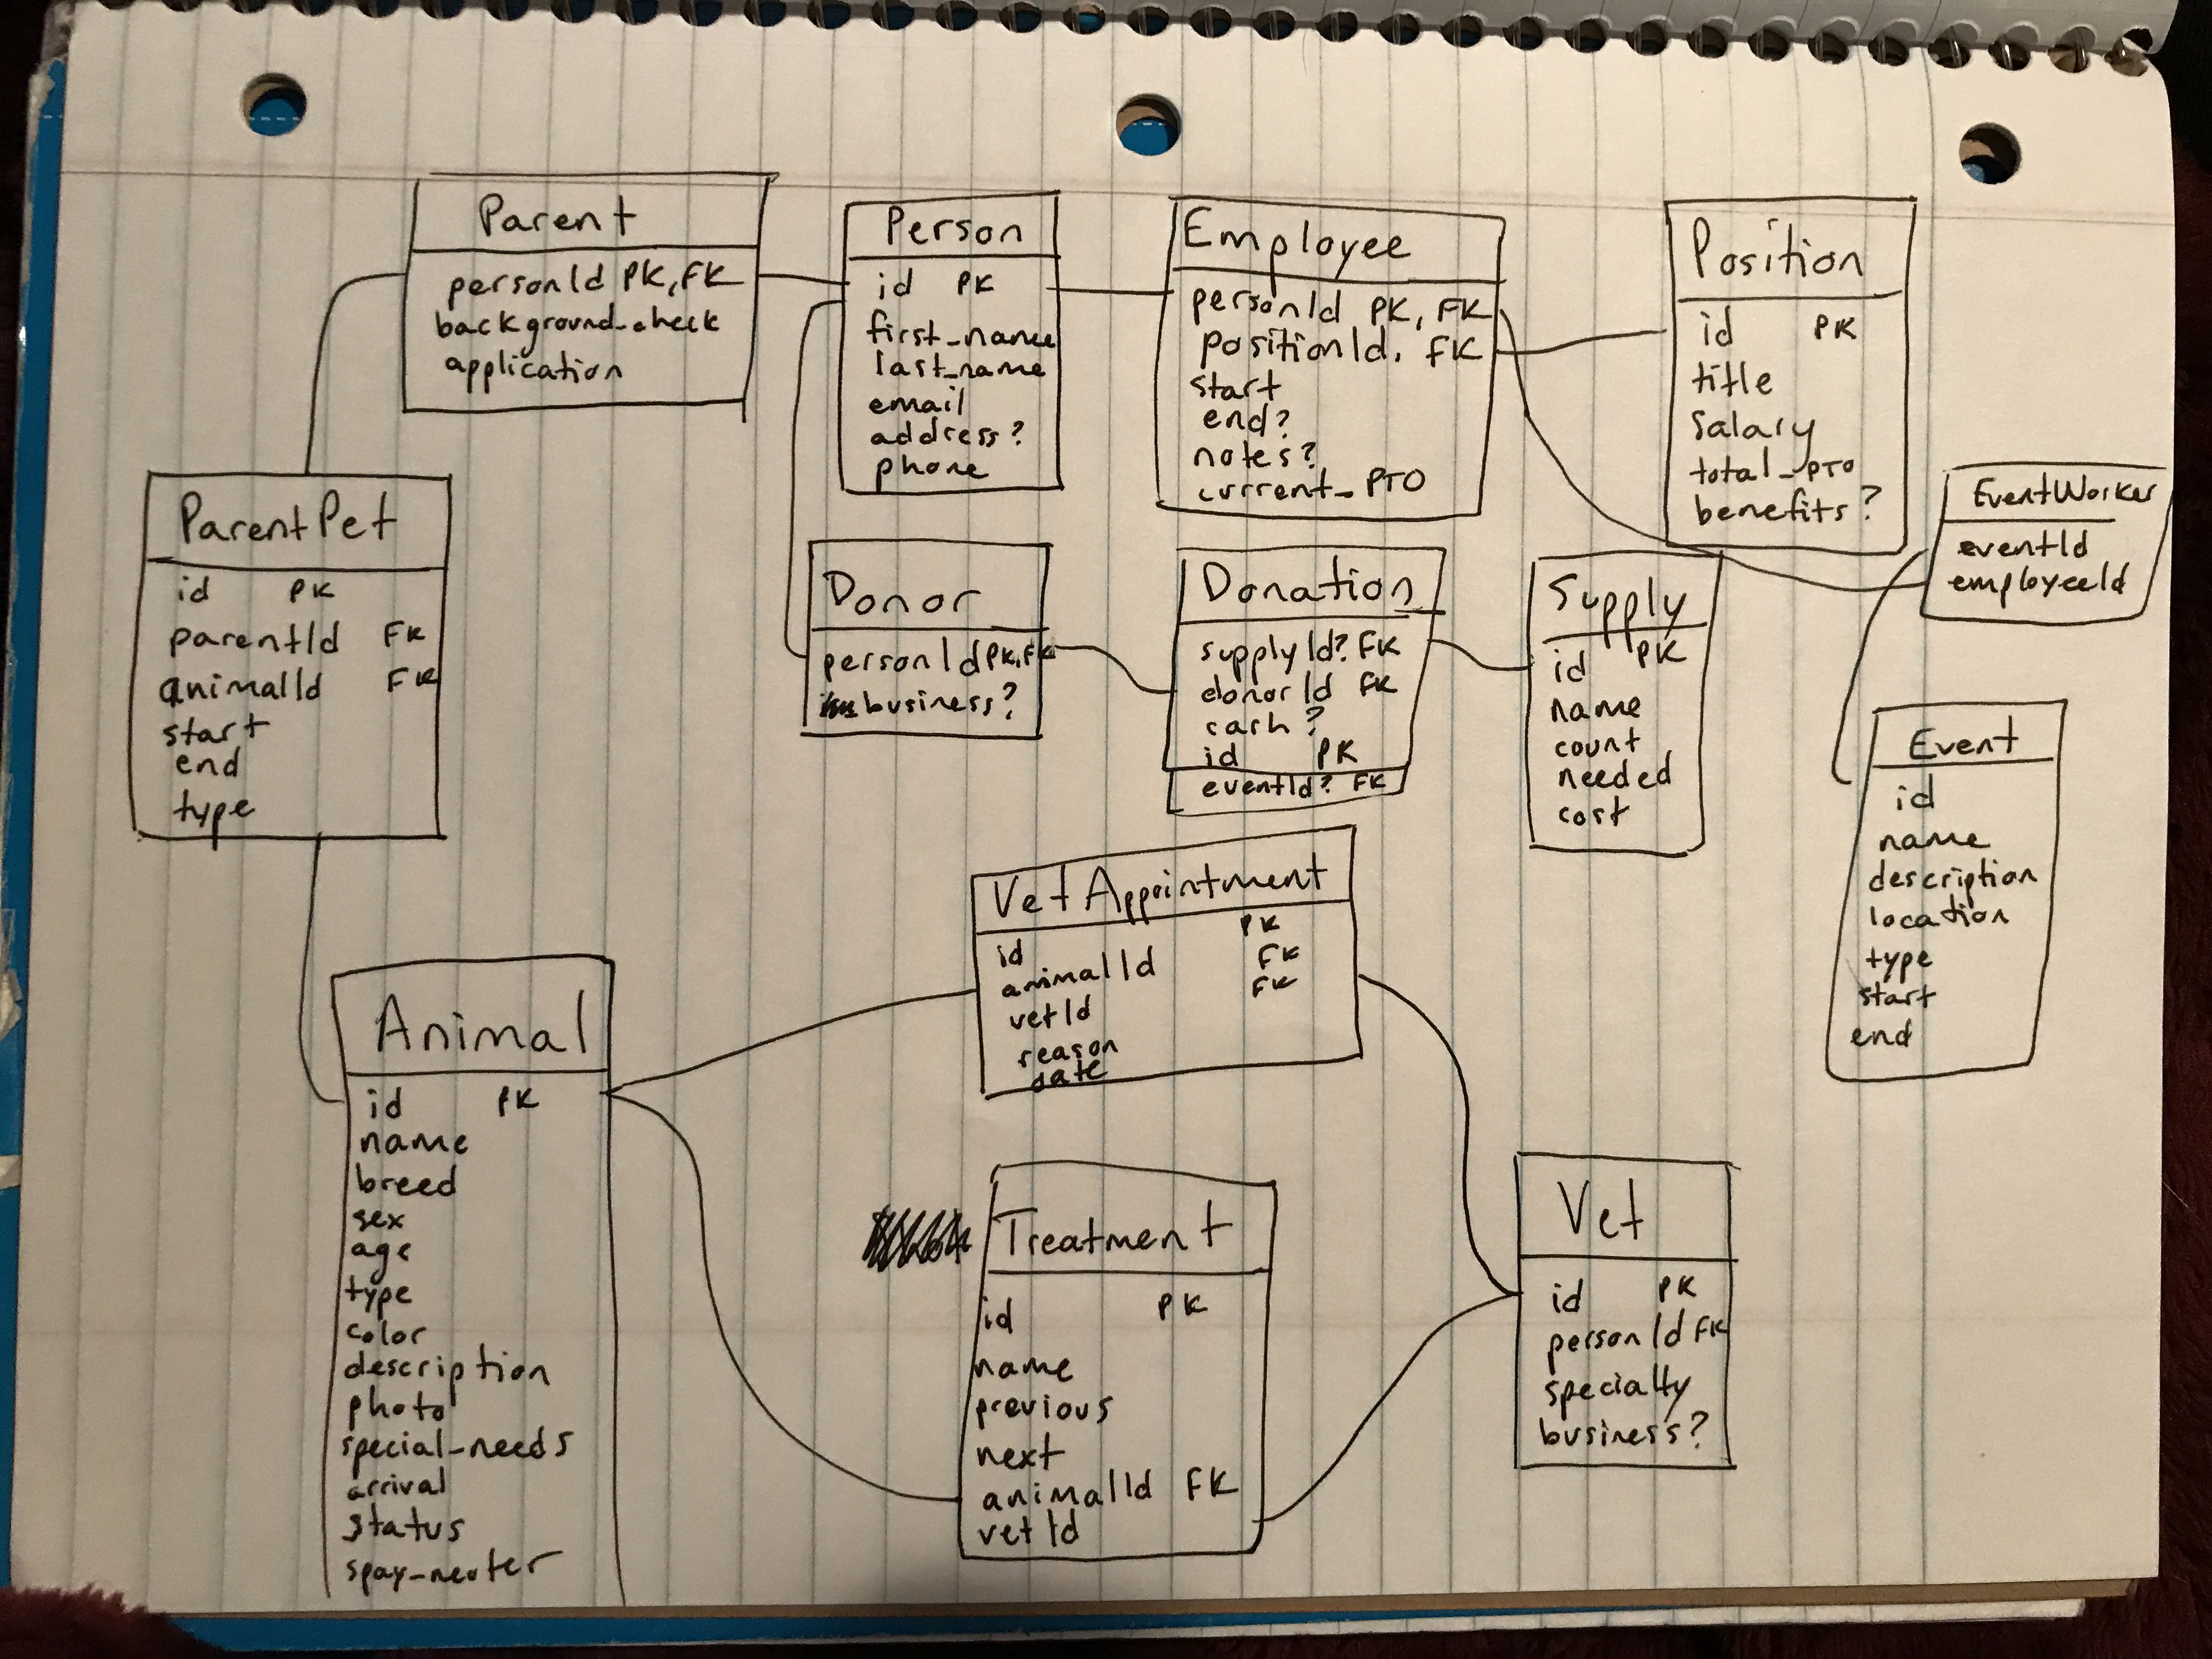 Parent
personId PK, FK
background_check
application
Person
id PK
first_name
last_name
email
address?
phone
Employee
personId PK, FK
positionId. FK
start
end?
notes?
current_PTO
Position
id PK
title
salary
total_PTO
benefits?
EventWorker
eventId
employeeId
ParentPet
id PK
parentId FK
animalId FK
start
end
type
Donor
personId PK, FK
business?
Donation
supplyId? FK
donorId FK
cash?
id PK
eventId? FK
Supply
id PK
name
count
needed
cost
Event
id
name
description
location
type
start
end
VetAppointment
id PK
animalId FK
vetId FK
reason
date
Animal
id PK
name
breed
sex
age
type
color
description
photo
special-needs
arrival
status
spay-neuter
Treatment
id PK
name
previous
next
animalId FK
vetId
Vet
id PK
personId FK
specialty
business?